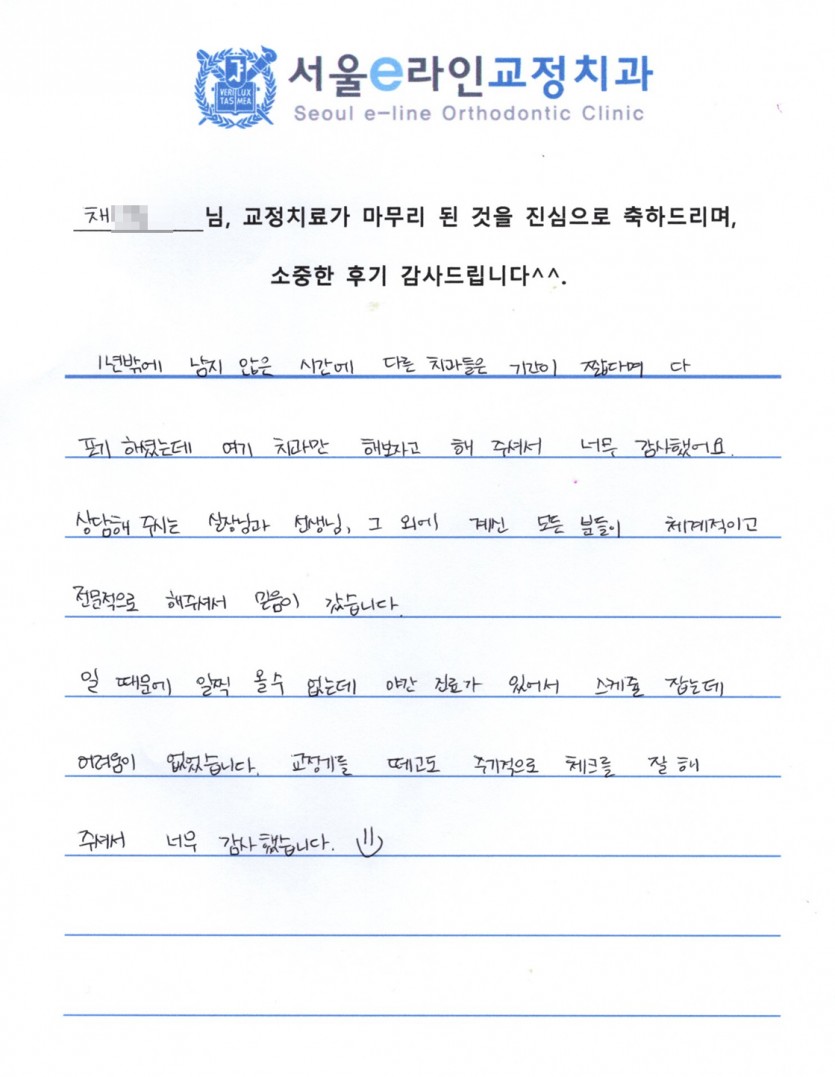 VERI LUX
TAS MEA
서울e라인교정치과
Seoul e-line Orthodontic Clinic
채 님, 교정치료가 마무리 된 것을 진심으로 축하드리며,
소중한 후기 감사드립니다^^.
1년밖에 남지 않은 시간에 다른 치과들은 기간이 짧다며 다
포기 하셨는데 여기 치과만 해보자고 해 주셔서 너무 감사했어요.
상담해 주시는 실장님과 선생님, 그 외에 계신 모든 분들이 체계적이고
전문적으로 해주셔서 믿음이 갔습니다.
일 때문에 일찍 올수 없는데 야간 진료가 있어서 스케줄 잡는데
어려움이 없었습니다. 교정기를 떼고도 주기적으로 체크를 잘 해
주셔서 너무 감사했습니다.